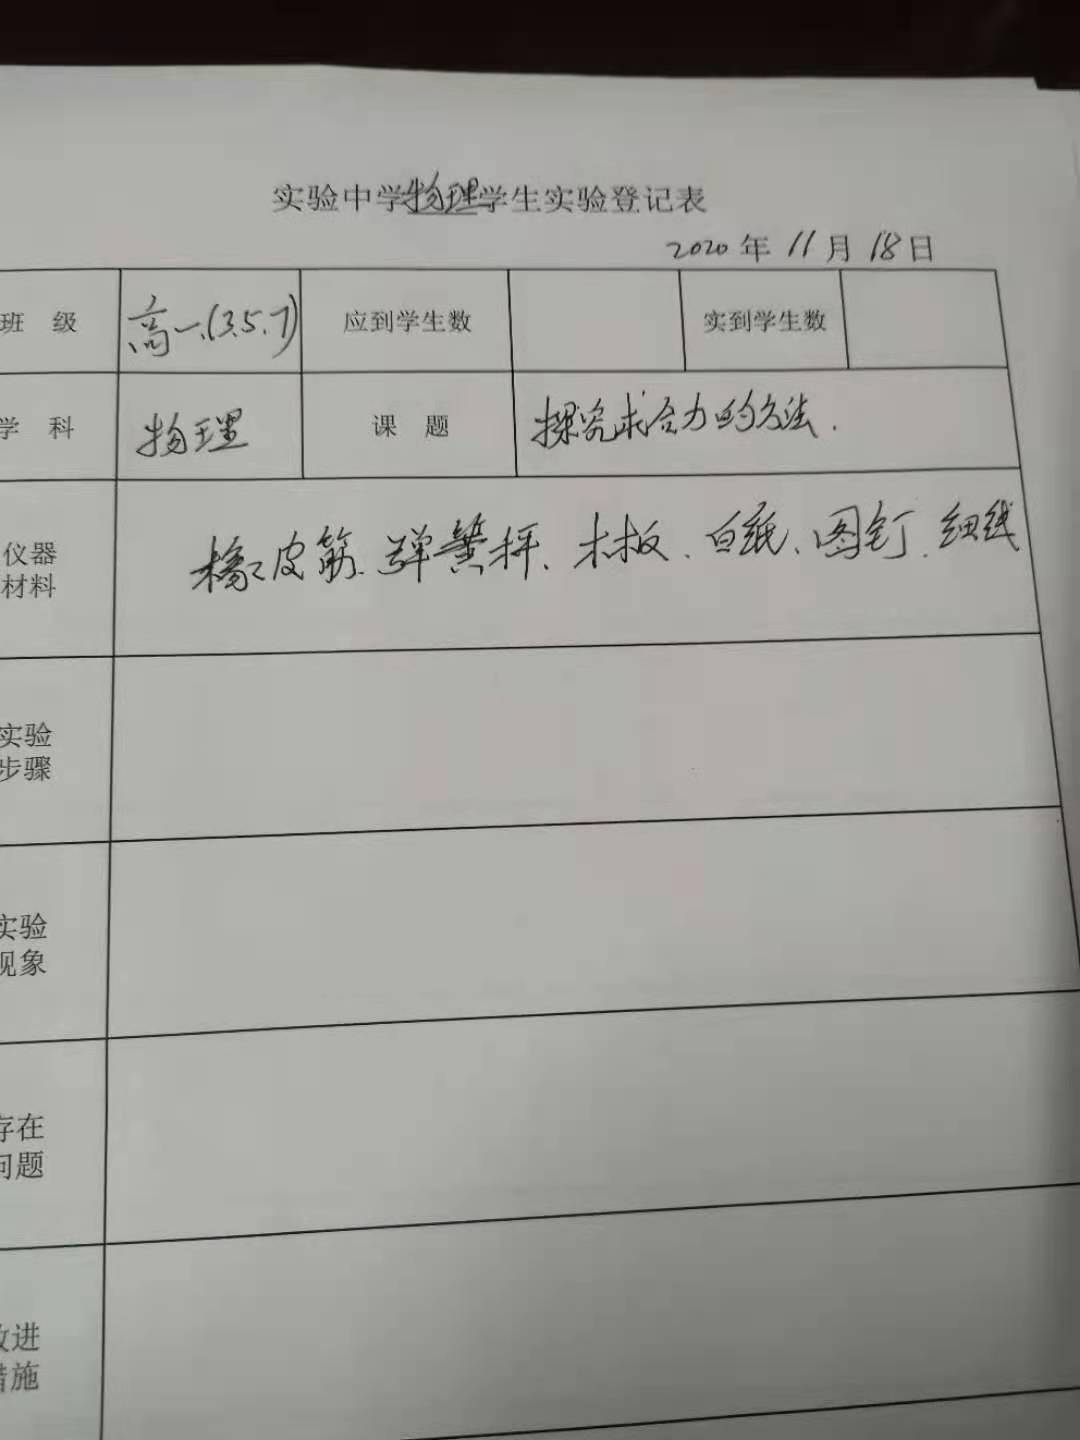 实验中学物理学生实验登记表
2020年11月18日
班 级 高一.(3.5.7) 应到学生数 实到学生数
学 科 物理 课 题 探究求合力的方法.
仪器
材料
橡皮筋、弹簧秤、木板、白纸、图钉、细线
实验
步骤
实验
现象
存在
问题
改进
措施